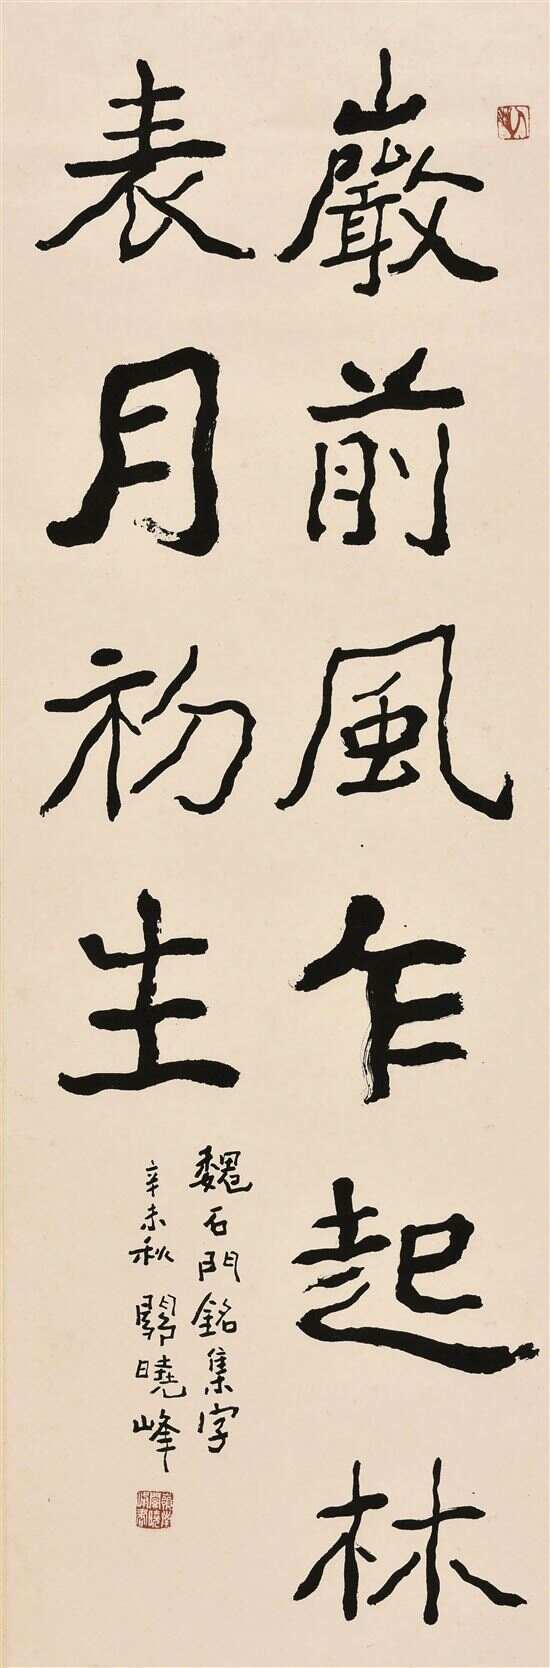 巖前風乍起林
表月初生
魏石門銘集字
辛未秋 關曉峰